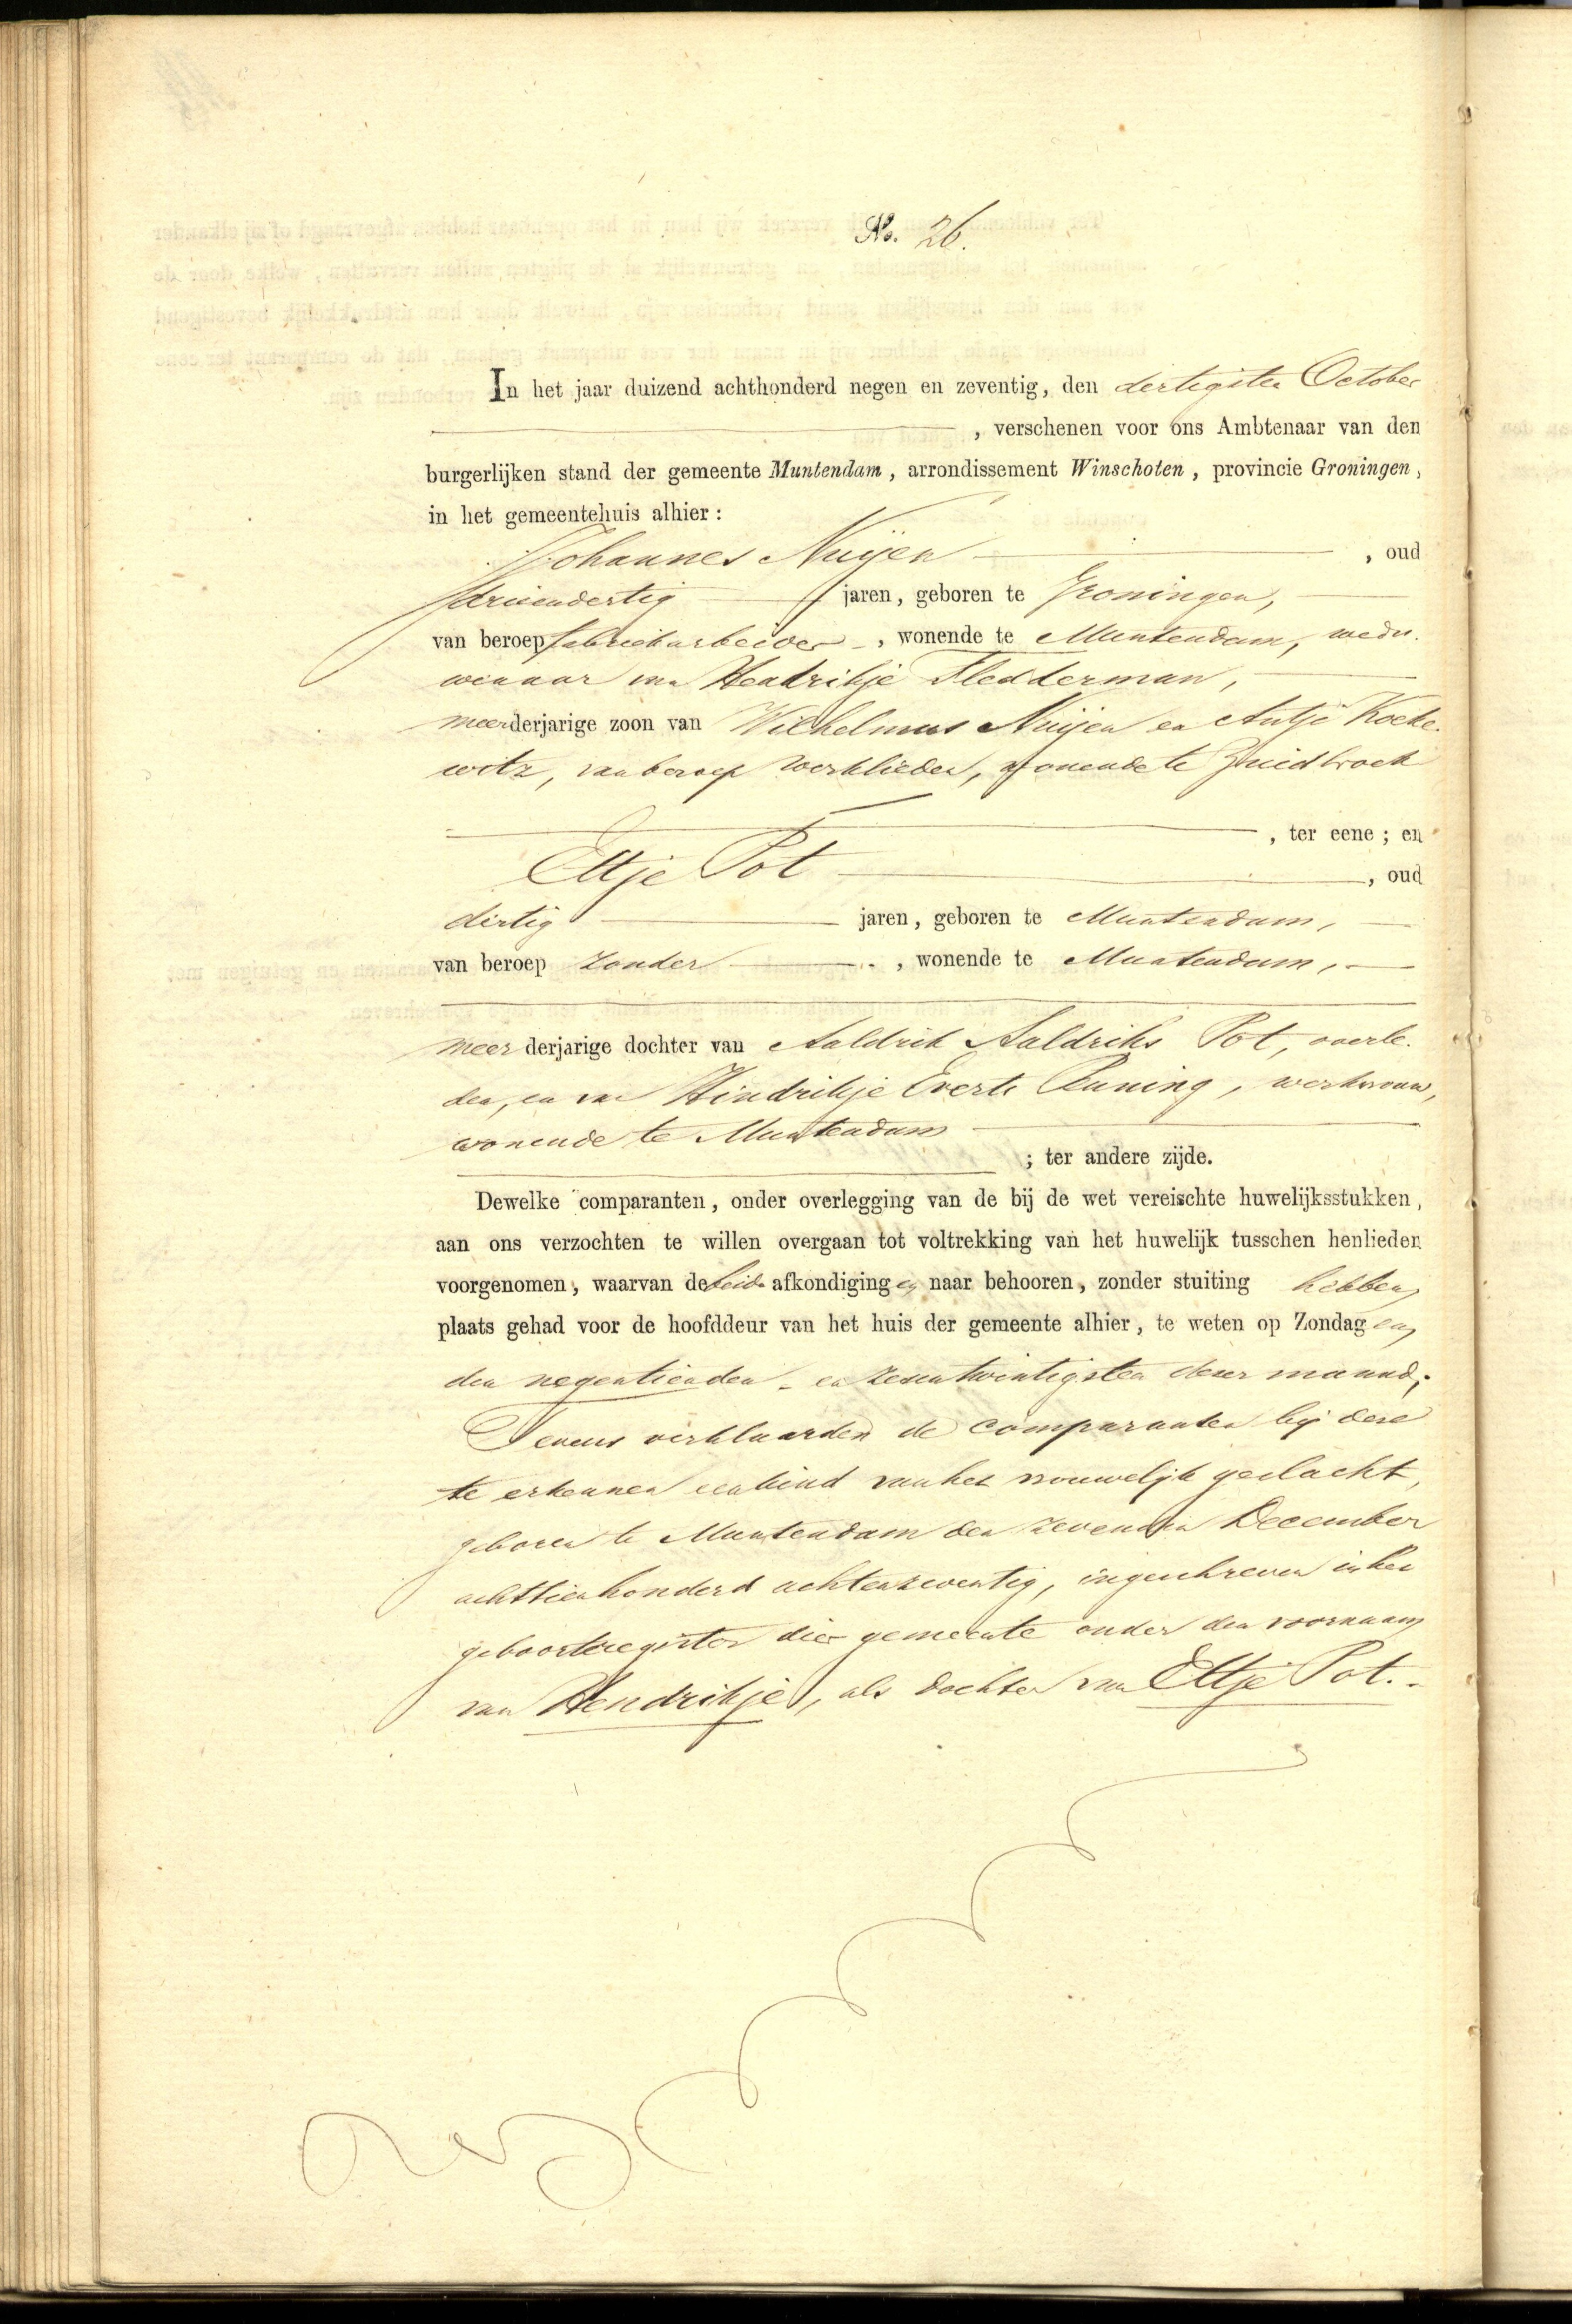 No. 26.
In het jaar duizend achthonderd negen en zeventig, den dertigsten October
, verschenen voor ons Ambtenaar van den
burgerlijken stand der gemeente Muntendam, arrondissement Winschoten, provincie Groningen,
in het gemeentehuis alhier:
Johannes Nuijen , oud
drieendertig jaren, geboren te Groningen,
van beroep fabriekarbeider, wonende te Muntendam, wedu-
wenaar van Hendrikje Fledderman,
meerderjarige zoon van Wilhelmus Nuijen en Antje Kocke-
witz, van beroep werklieden, wonende te Zuidbroek
, ter eene; en
Eltje Pot , oud
dertig jaren, geboren te Muntendam,
van beroep zonder , wonende te Muntendam,
meerderjarige dochter van Aaldrik Aaldriks Pot, overle-
den, en van Hindrikje Everts Runing, werkvrouw,
wonende te Muntendam
; ter andere zijde.
Dewelke comparanten, onder overlegging van de bij de wet vereischte huwelijksstukken,
aan ons verzochten te willen overgaan tot voltrekking van het huwelijk tusschen henlieden
voorgenomen, waarvan de beide afkondigingen naar behooren, zonder stuiting hebben
plaats gehad voor de hoofddeur van het huis der gemeente alhier, te weten op Zondagen
den negentienden - en zesentwintigsten dezer maand;
Tevens verklaarden de comparanten bij deze
te erkennen een kind van het vrouwelijk geslacht,
geboren te Muntendam den zevenden December
achttienhonderd achtenzeventig, ingeschreven in het
geboorteregister dier gemeente onder den voornaam
van Hendrikje, als dochter van Eltje Pot.-